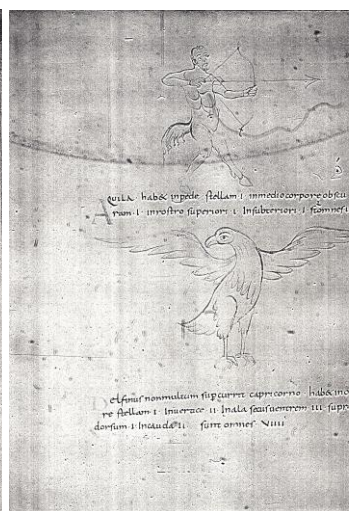 AQUILA habet inpede stellam · I · inmediocorpore obscu
ram · I · inrostro superiori · I · Insubteriori · I ·
Delfinus nonmultum sup currit capricorno habet
re stellam · I · Inueruice · II · Inala secus uentrem · III · supra
dorsum · I · Incauda · II · sunt omnes VIIII